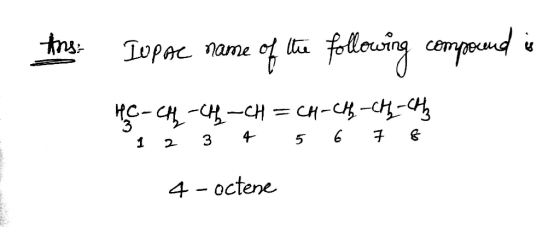 Ans:- IUPAC name of the following compound is
H₃C-CH₂-CH₂-CH=CH-CH₂-CH₂-CH₃
1 2 3 4 5 6 7 8
4-octene